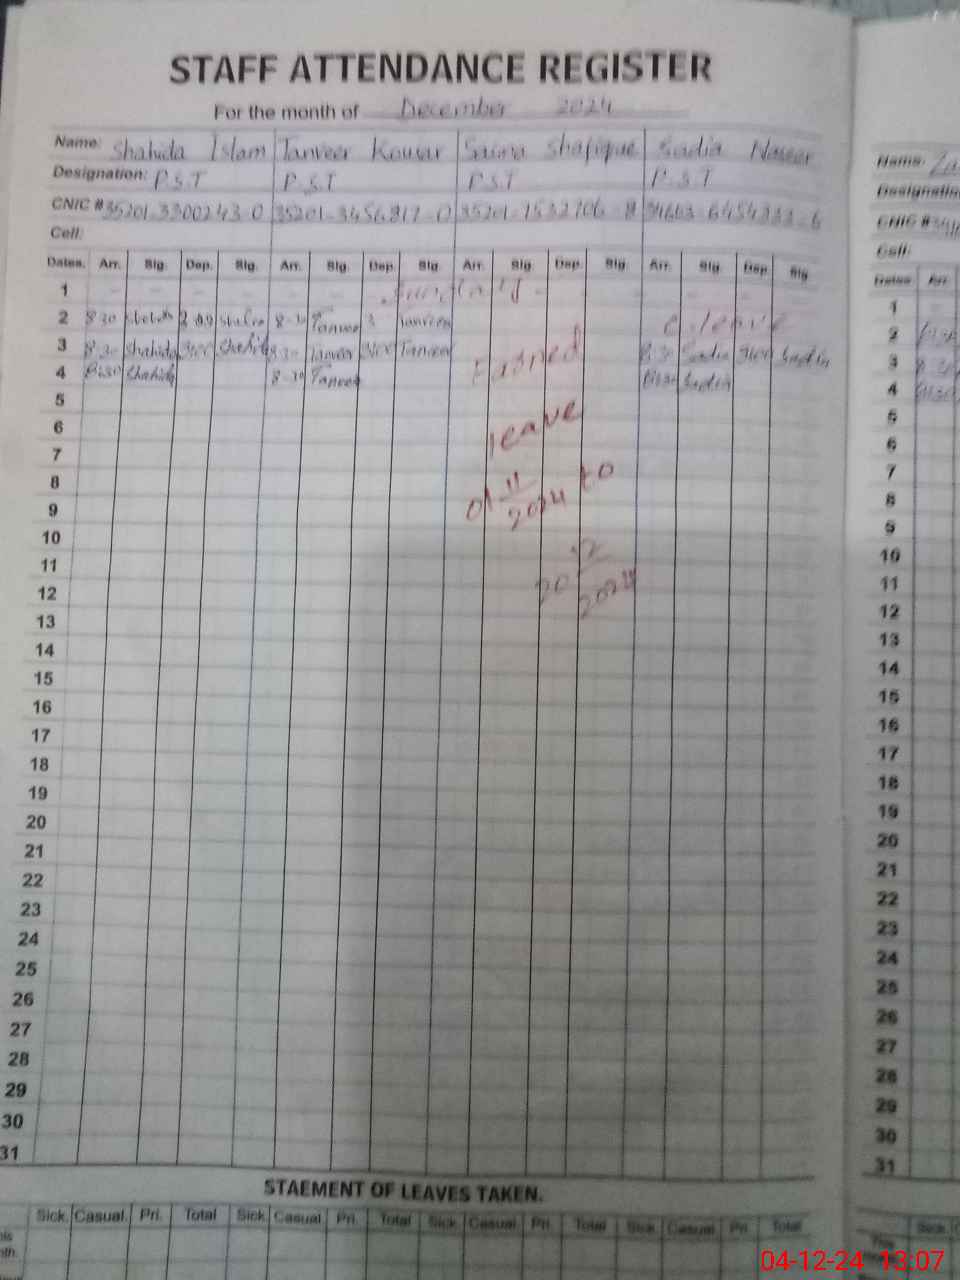 STAFF ATTENDANCE REGISTER
For the month of December 2024
Name: Shahida Islam Tanveer Kousar Saima Shafique Sadia Naseer
Designation: P.S.T P.S.T P.S.T P.S.T
CNIC # 35201-3300243-0 35201-3456817-0 35201-1532706-8
Cell:
Dates. Arr. Sig. Dep. Sig. Arr. Sig. Dep. Sig. Arr. Sig. Dep. Sig. Arr. Sig. Dep. Sig.
1
2 8 30 8-30 Tanveer 3 Tanveer c.leave
3 8.30 Shahida 3:00 Shahida 8.30 Tanveer 3:00 Tanveer 8:30 Sadia 3:00 Sadia
4 8:30 Shahida 8-30 Tanveer 8:30 Sadia
5
6
7
8
9
10
11
12
13
14
15
16
17
18
19
20
21
22
23
24
25
26
27
28
29
30
31
leave
01 11 2024 to
20 12 2024
STAEMENT OF LEAVES TAKEN.
Sick. Casual. Pri. Total Sick. Casual Pri. Total Sick. Casual Pri. Total Sick. Casual Pri. Total
Name:
Designation
CNIC #
Cell:
Dates Arr.
1
2
3 8.30
4
5
6
7
8
9
10
11
12
13
14
15
16
17
18
19
20
21
22
23
24
25
26
27
28
29
30
31
Sick.
This
04-12-24 13:07